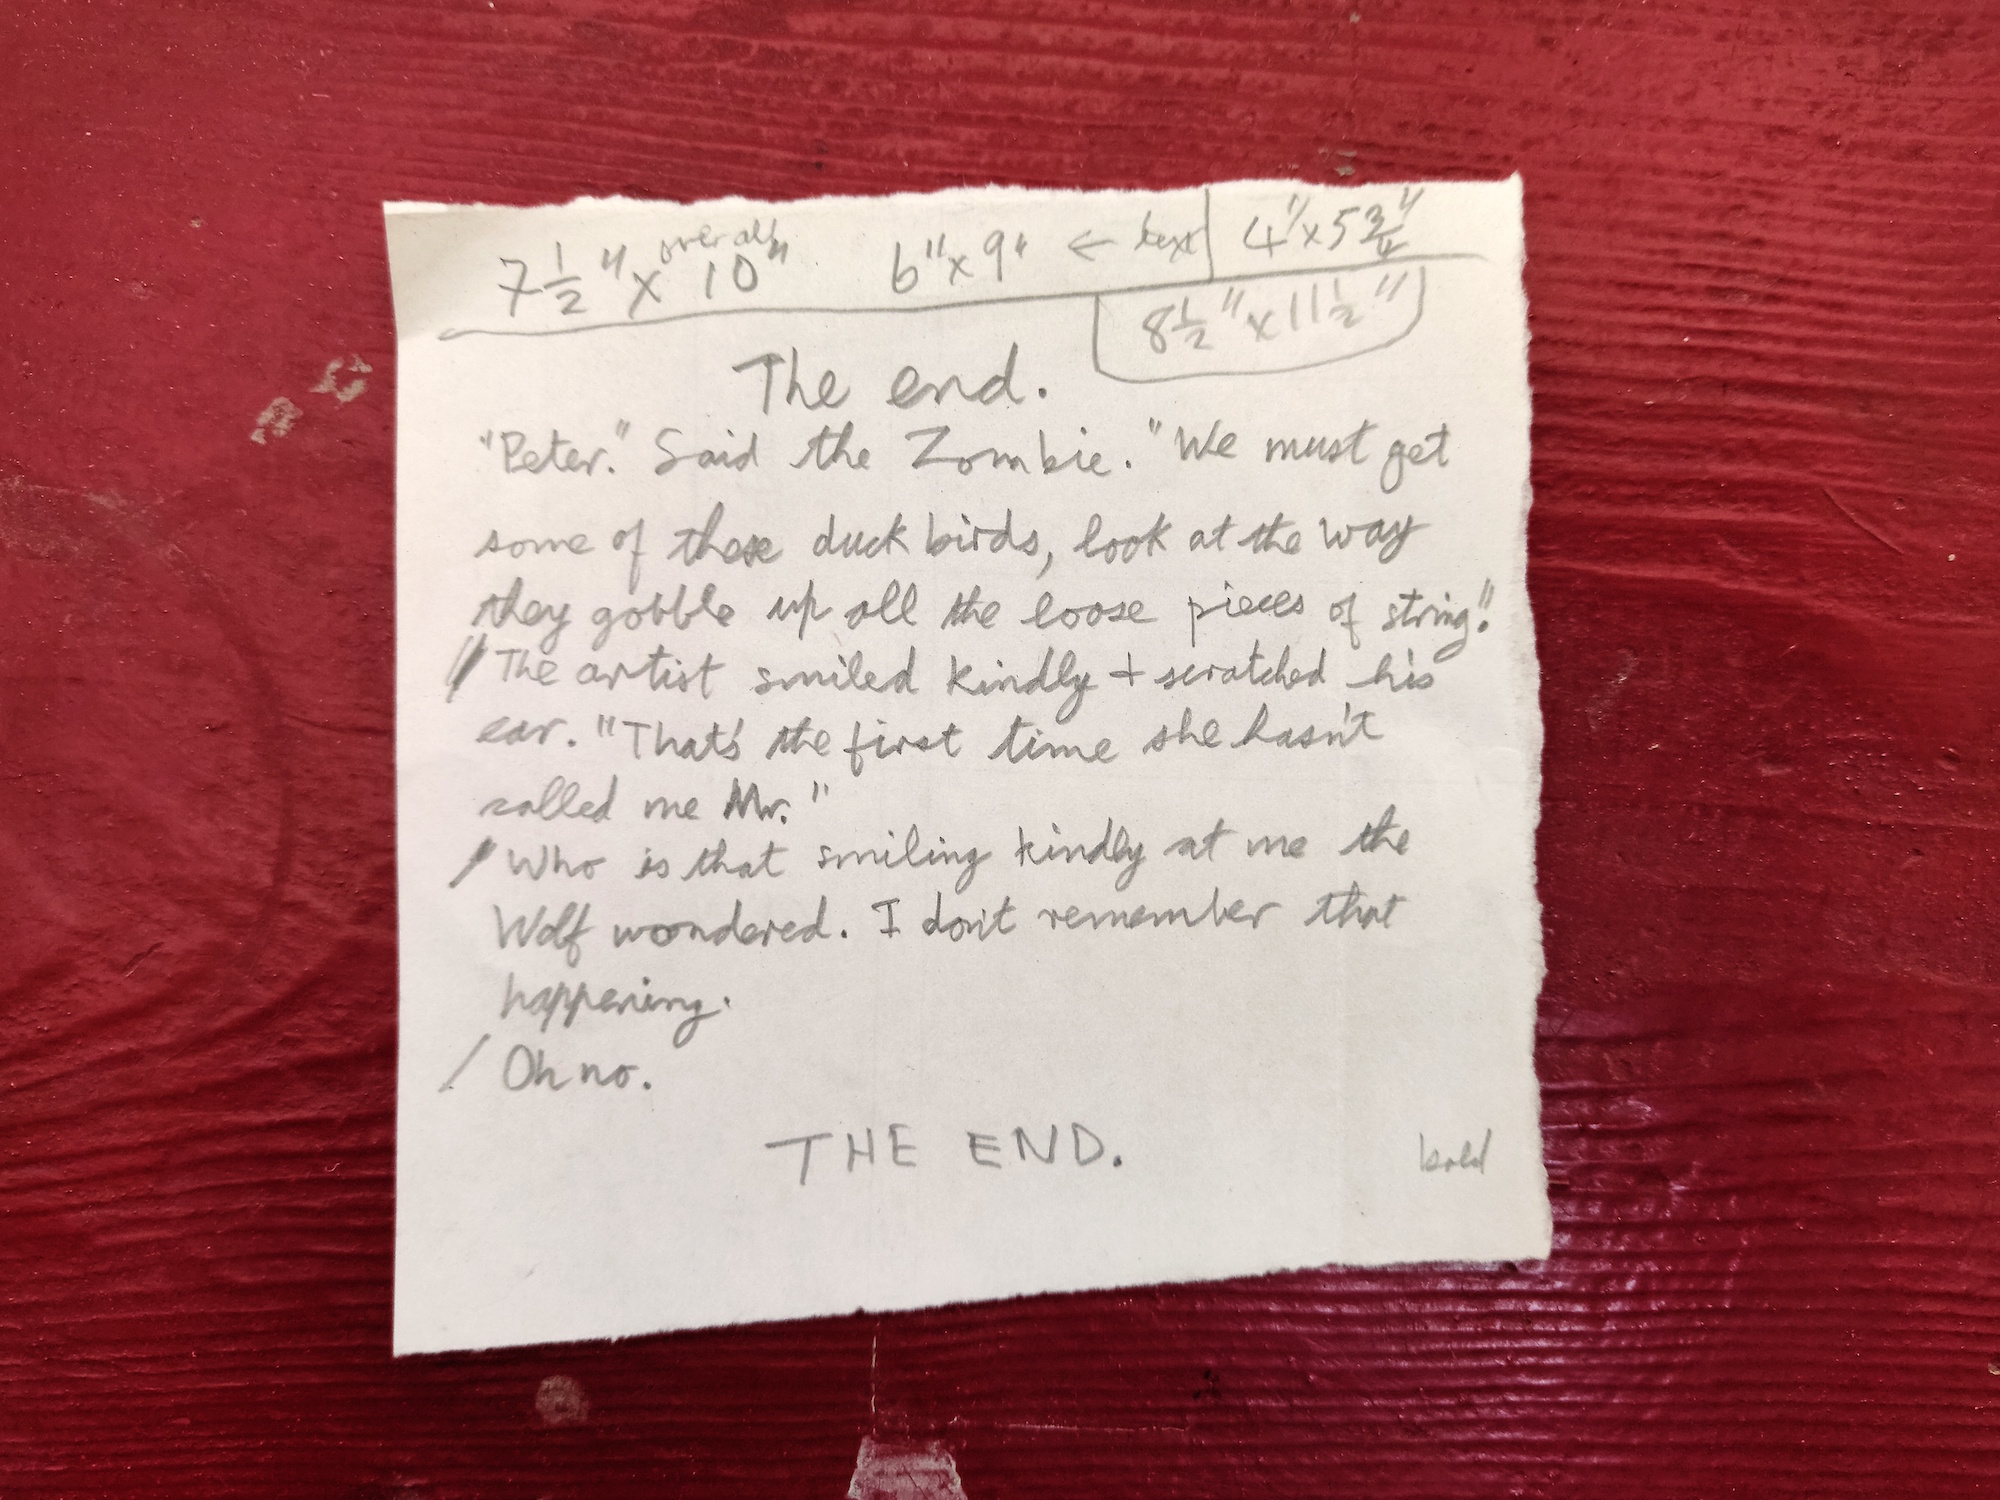 7 1/2" x 10" overall 6" x 9" ← text 4" x 5 3/4"
8 1/2" x 11 1/2"
The end.
"Peter." Said the Zombie. "We must get
some of these duck birds, look at the way
they gobble up all the loose pieces of string."
The artist smiled kindly + scratched his
ear. "That's the first time she hasn't
called me Mr."
Who is that smiling kindly at me the
Wolf wondered. I don't remember that
happening.
/ Oh no.
THE END.